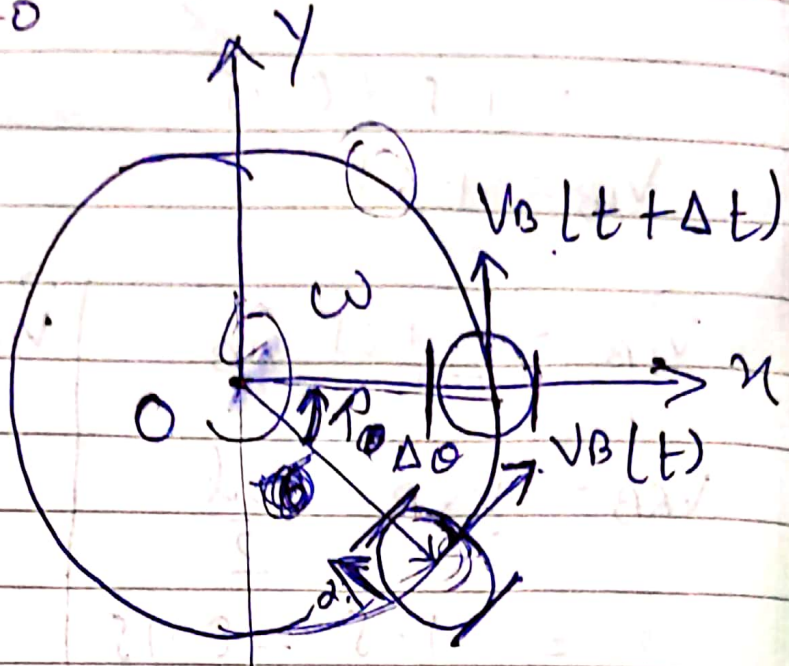 0
Y
VB(t+Δt)
ω
x
O
Δθ
VB(t)